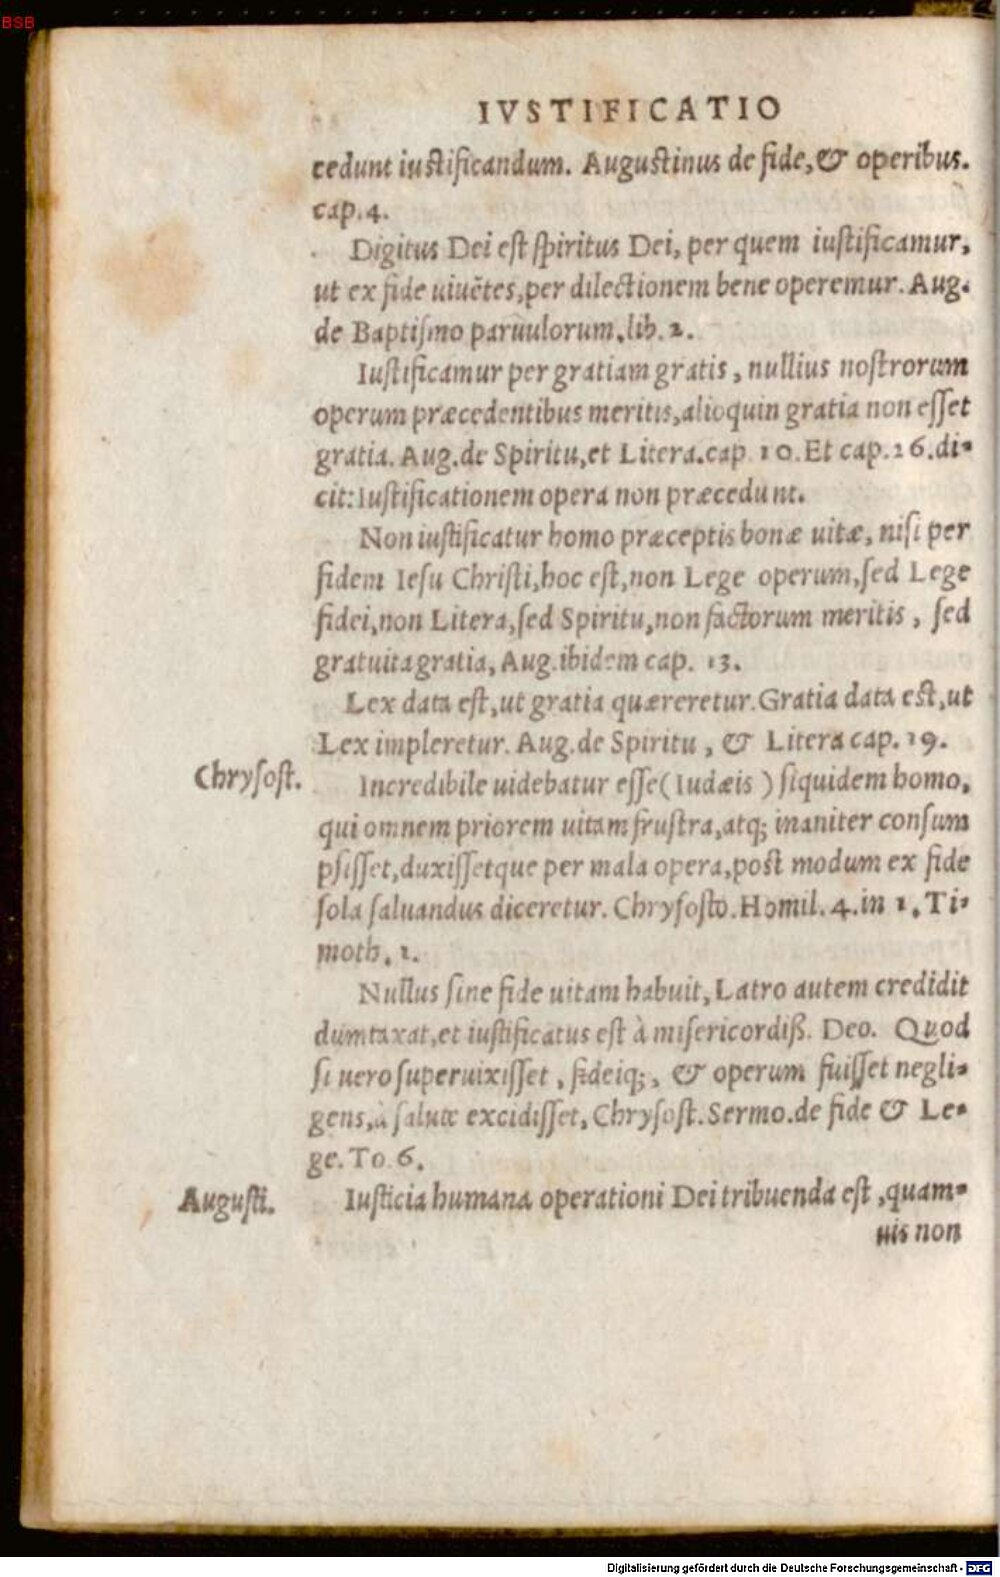 BSB
IVSTIFICATIO
cedunt iustificandum. Augustinus de fide, & operibus.
cap. 4.
Digitus Dei est spiritus Dei, per quem iustificamur,
ut ex fide uiuẽtes, per dilectionem bene operemur. Aug.
de Baptismo paruulorum, lib. 2.
Iustificamur per gratiam gratis, nullius nostrorum
operum præcedentibus meritis, alioquin gratia non esset
gratia. Aug. de Spiritu, et Litera. cap 10. Et cap. 26. di-
cit: Iustificationem opera non præcedunt.
Non iustificatur homo præceptis bonæ uitæ, nisi per
fidem Iesu Christi, hoc est, non Lege operum, sed Lege
fidei, non Litera, sed Spiritu, non factorum meritis, sed
gratuita gratia, Aug. ibidem cap. 13.
Lex data est, ut gratia quæreretur. Gratia data est, ut
Lex impleretur. Aug. de Spiritu, & Litera cap. 19.
Chrysost.
Incredibile uidebatur esse (Iudæis) siquidem homo,
qui omnem priorem uitam frustra, atq; inaniter consum
psisset, duxissetque per mala opera, post modum ex fide
sola saluandus diceretur. Chrysosto. Homil. 4. in 1. Ti-
moth. 1.
Nullus sine fide uitam habuit, Latro autem credidit
dumtaxat, et iustificatus est à misericordiß. Deo. Quod
si uero superuixisset, fideiq;, & operum fuisset negli-
gens, à salute excidisset, Chrysost. Sermo. de fide & Le-
ge. To. 6.
Augusti.
Iusticia humana operationi Dei tribuenda est, quam-
uis non
Digitalisierung gefördert durch die Deutsche Forschungsgemeinschaft - DFG